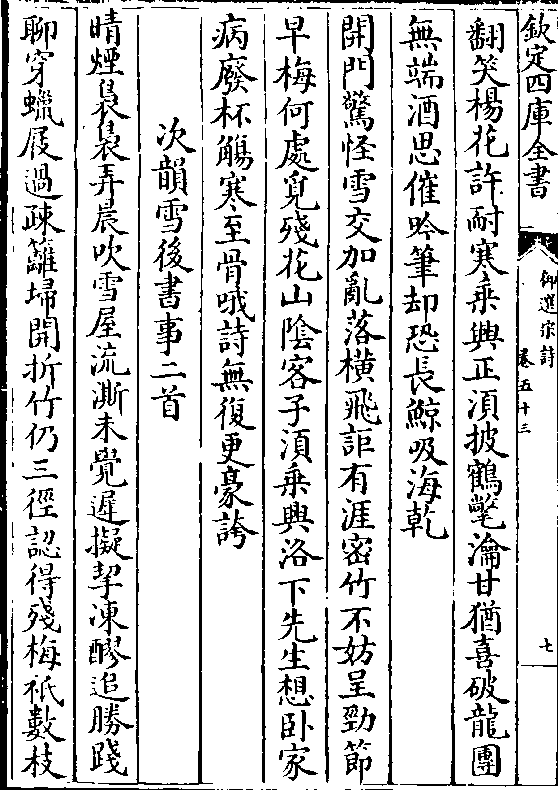 欽定四庫全書
御選宋詩
卷五十三
七
翻笑楊花許耐寒乗興正須披鶴氅瀹甘猶喜破龍團
無端酒思催吟筆却恐長鯨吸海乾
開門驚怪雪交加亂落橫飛詎有涯密竹不妨呈勁節
早梅何處覓殘花山陰客子須乗興洛下先生想卧家
病廢杯觴寒至骨哦詩無復更豪誇
次韻雪後書事二首
晴煙裊裊弄晨吹雪屋流澌未覺遲擬挈凍醪追勝踐
聊穿蠟屐過疎籬埽開折竹仍三徑認得殘梅秪數枝